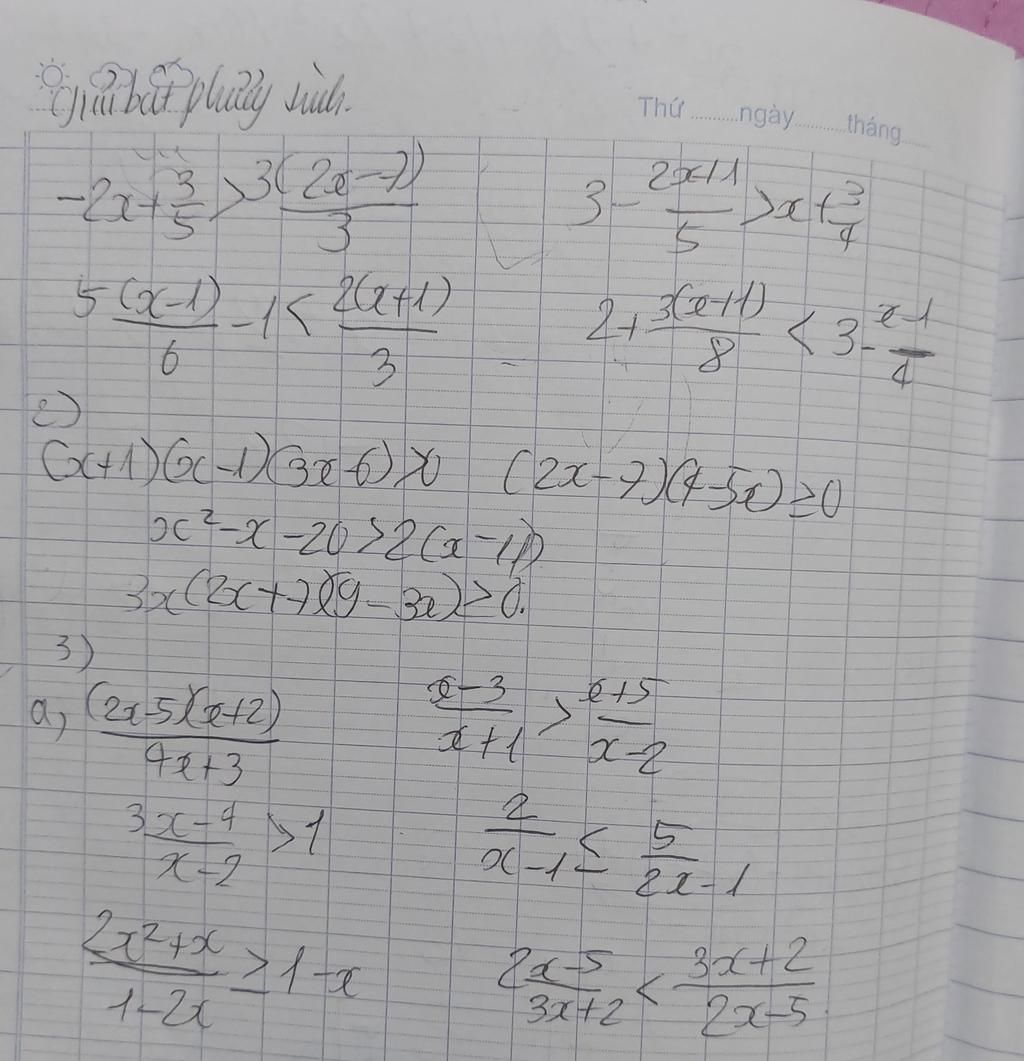 Giải bất phương trình.
Thứ ..........ngày..........tháng
-2x + 3/5 > 3(2x-7)/3    3 - (2x+1)/5 > x + 3/4
5(x-1)/6 - 1 < 2(x+1)/3    2 + 3(x+1)/8 < 3 - (x-1)/4
2)
(x+1)(x-1)(3x-6) > 0    (2x-7)(4-5x) ≥ 0
x² - x - 20 > 2(x-11)
3x(2x+7)(9-3x) ≥ 0.
3)
a, (2x-5)(x+2)/(4x+3)    (x-3)/(x+1) > (x+5)/(x-2)
(3x-4)/(x-2) > 1    2/(x-1) ≤ 5/(2x-1)
(2x²+x)/(1-2x) ≥ 1-x    (2x-5)/(3x+2) < (3x+2)/(2x-5)